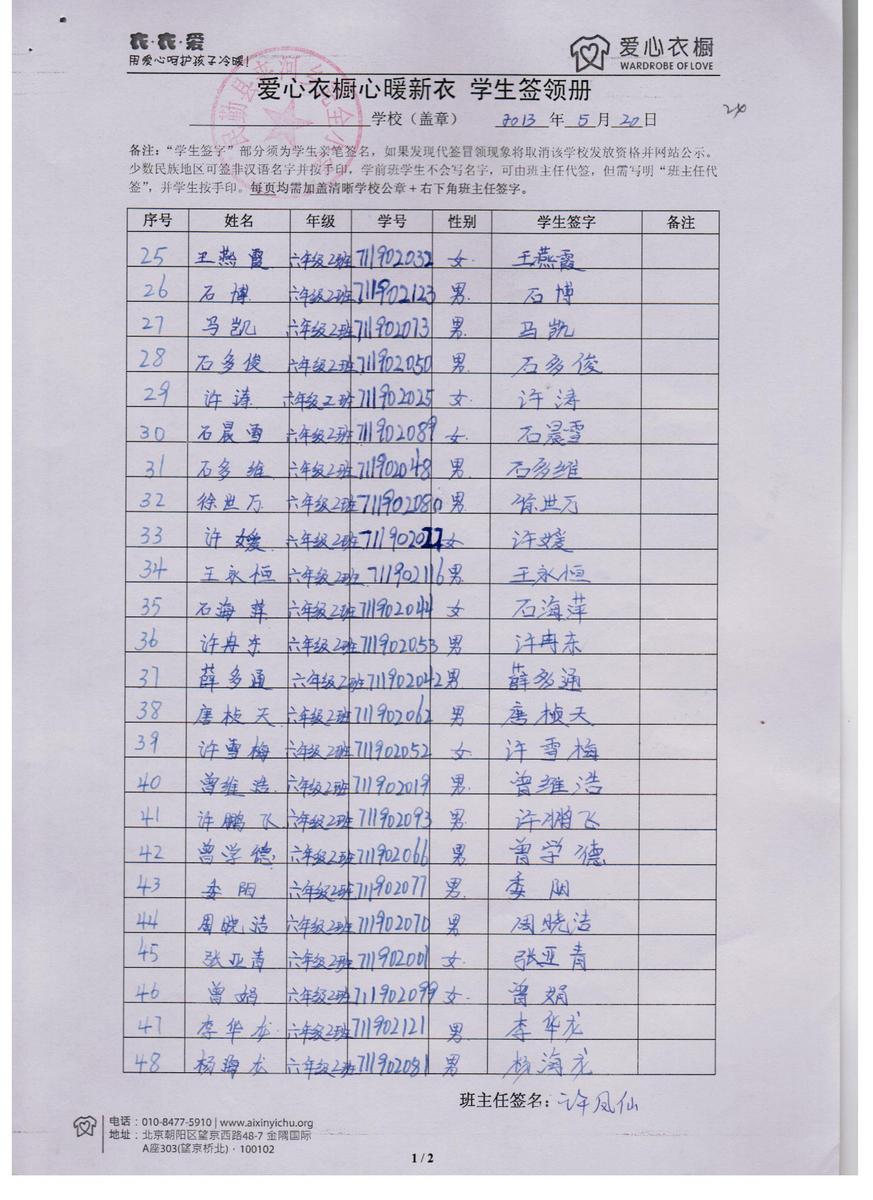 衣·衣·爱
用爱心呵护孩子冷暖!
爱心衣橱
WARDROBE OF LOVE
爱心衣橱心暖新衣 学生签领册
学校（盖章） 2013 年 5 月 20 日
24
备注：“学生签字”部分须为学生亲笔签名，如果发现代签冒领现象将取消该学校发放资格并网站公示。
少数民族地区可签非汉语名字并按手印。学前班学生不会写名字，可由班主任代签，但需写明“班主任代
签”，并学生按手印。每页均需加盖清晰学校公章+右下角班主任签字。
序号 姓名 年级 学号 性别 学生签字 备注
25 王燕霞 六年级2班 711902032 女 王燕霞
26 石博 六年级2班 711902123 男 石博
27 马凯 六年级2班 711902073 男 马凯
28 石多俊 六年级2班 711902050 男 石多俊
29 许涛 六年级2班 711902025 女 许涛
30 石晨雪 六年级2班 711902089 女 石晨雪
31 石多维 六年级2班 711902048 男 石多维
32 徐世万 六年级2班 711902080 男 徐世万
33 许媛 六年级2班 711902027 女 许媛
34 王永恒 六年级2班 711902116 男 王永恒
35 石海萍 六年级2班 711902044 女 石海萍
36 许冉东 六年级2班 711902053 男 许冉东
37 薛多通 六年级2班 711902042 男 薛多通
38 唐桢天 六年级2班 711902062 男 唐桢天
39 许雪梅 六年级2班 711902052 女 许雪梅
40 曾维浩 六年级2班 711902019 男 曾维浩
41 许鹏飞 六年级2班 711902093 男 许鹏飞
42 曾学德 六年级2班 711902066 男 曾学德
43 委阳 六年级2班 711902077 男 委阳
44 周晓洁 六年级2班 711902070 男 周晓洁
45 张亚青 六年级2班 711902001 女 张亚青
46 曾娟 六年级2班 711902099 女 曾娟
47 李华龙 六年级2班 711902121 男 李华龙
48 杨海龙 六年级2班 711902081 男 杨海龙
班主任签名：许凤仙
电话：010-8477-5910 | www.aixinyichu.org
地址：北京朝阳区望京西路48-7 金隅国际
A座303(望京桥北)·100102
1 / 2